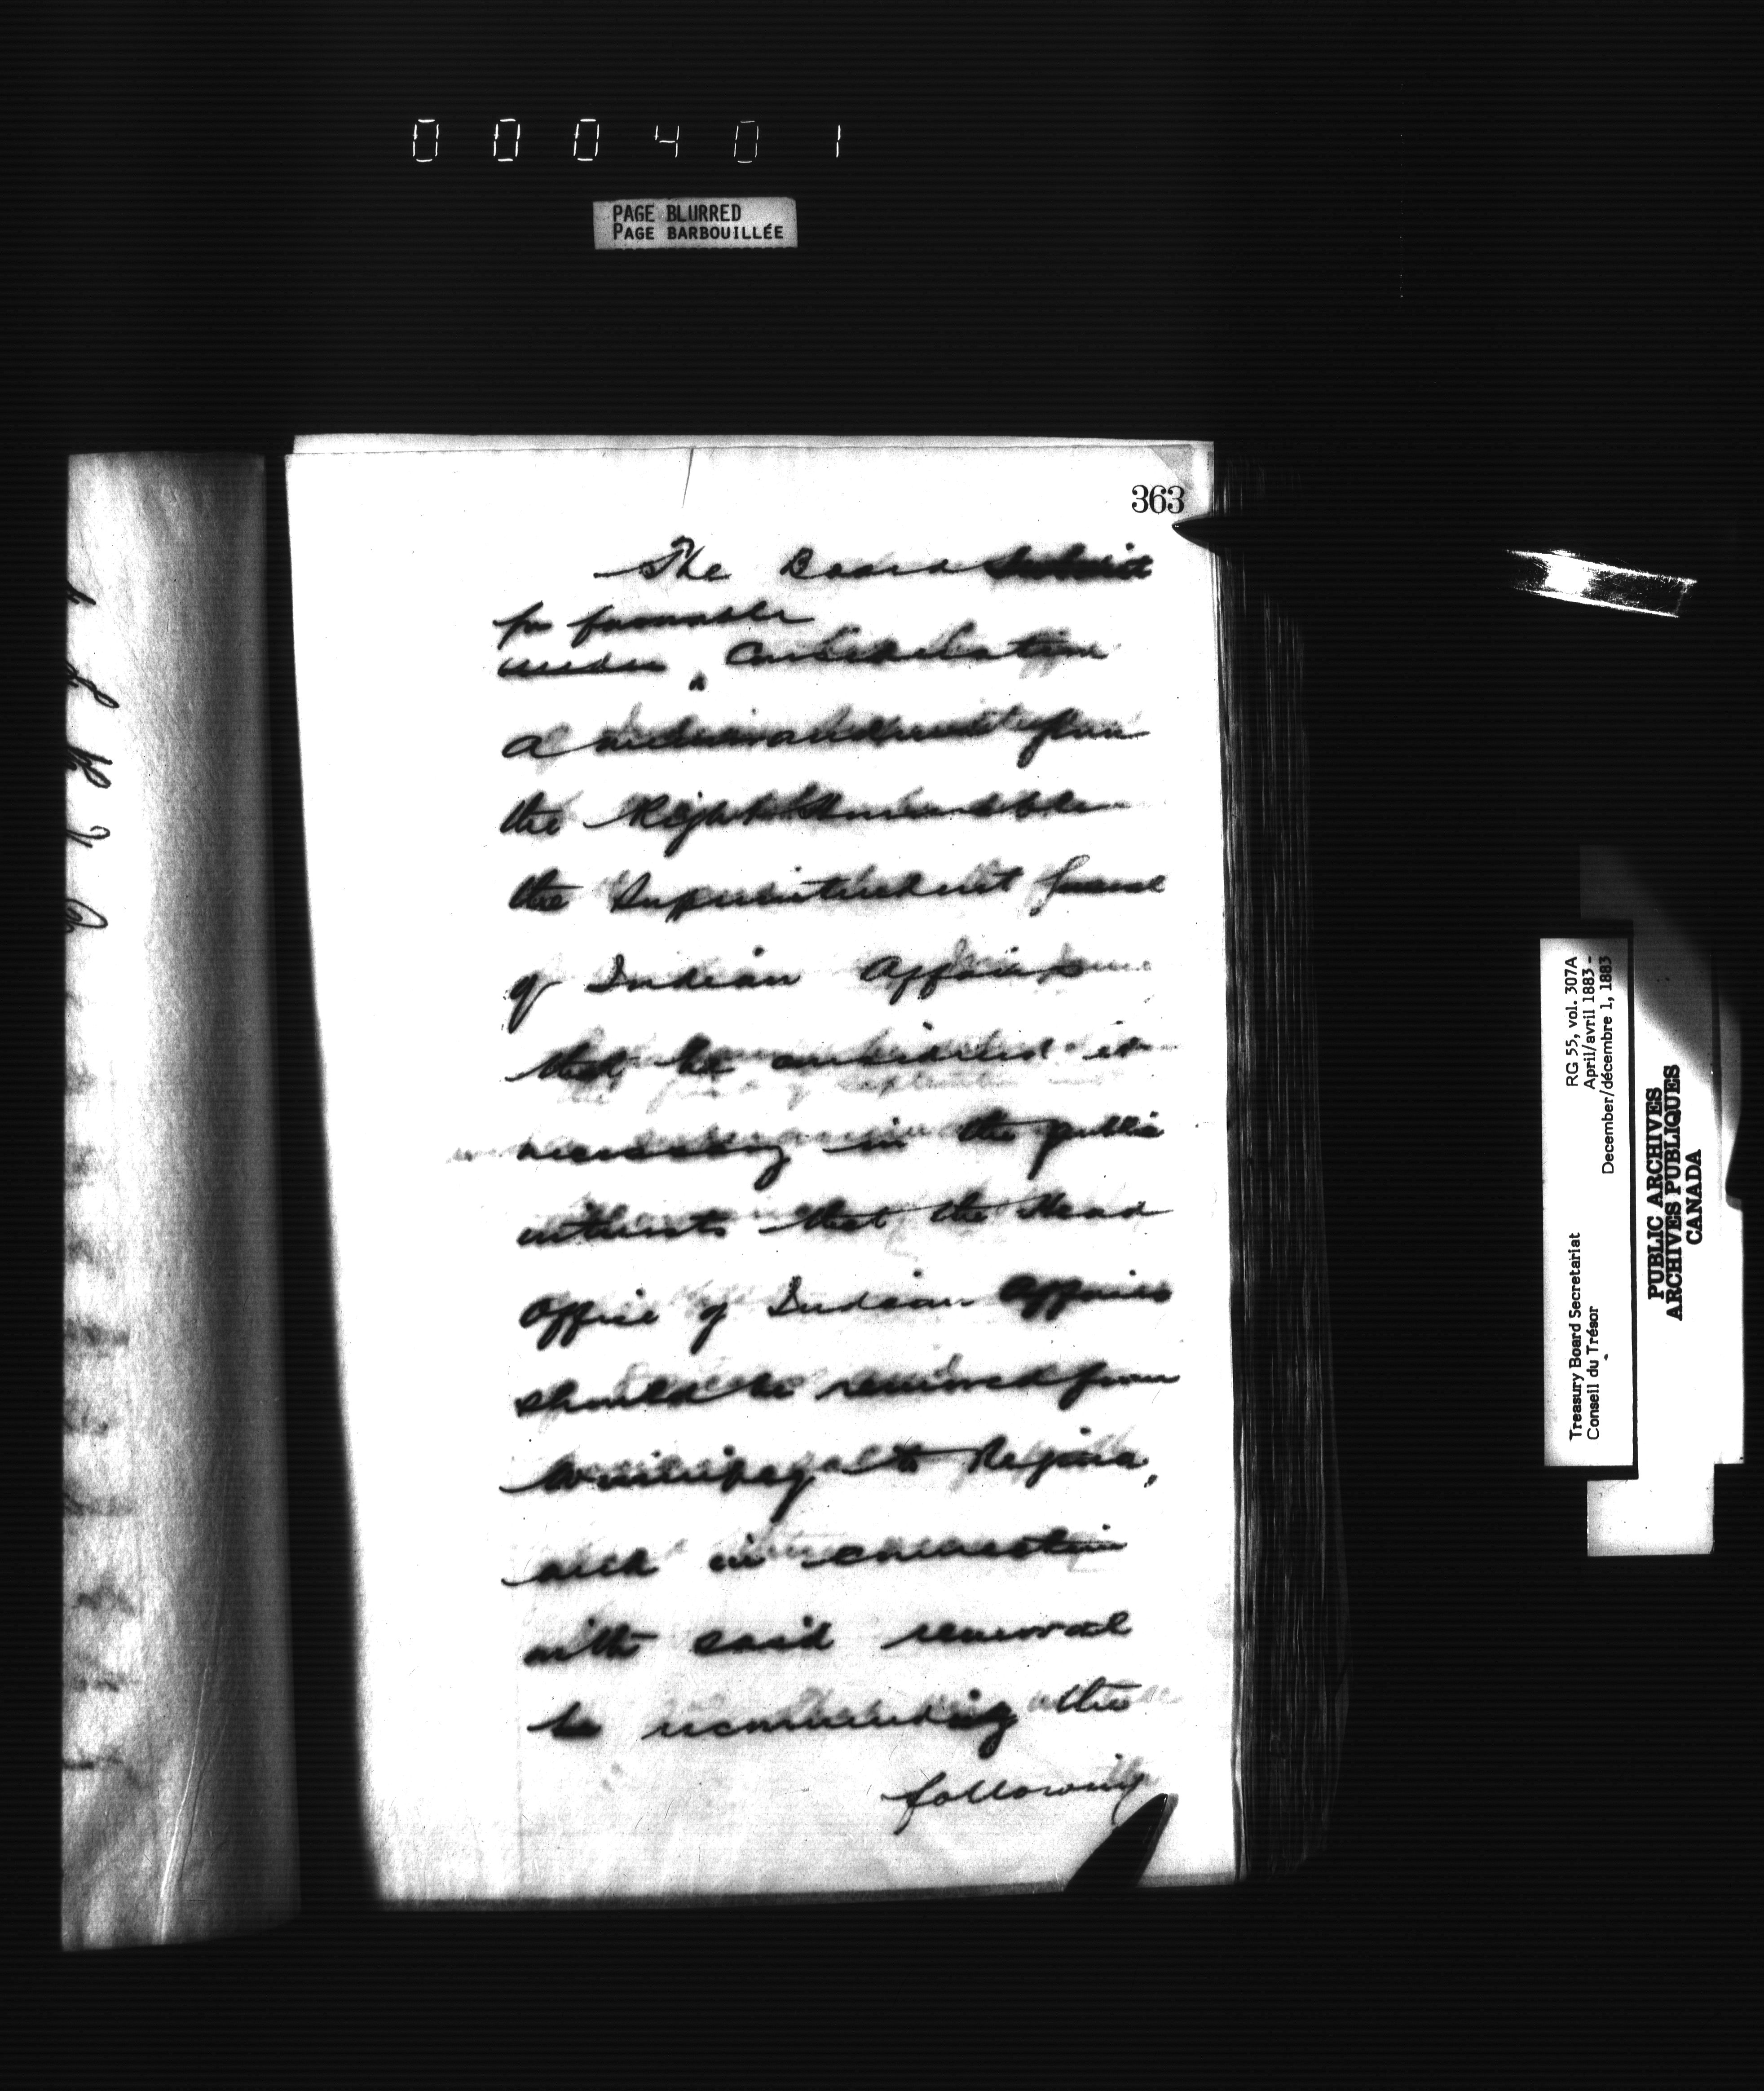 000401
PAGE BLURRED
PAGE BARBOUILLÉE
363
The Board submit
for favorable
under ‸ Consideration
a
the Right Honourable
the Superintendent General
of Indian Affairs
that he considered it
necessary in the public
interests that the Head
Office of Indian Affairs
should be removed from
Winnipeg to Regina,
and in connection
with said removal
he recommending the
following
Treasury Board Secretariat
Conseil du Trésor
RG 55, vol. 307A
April/avril 1883 -
December/décembre 1, 1883
PUBLIC ARCHIVES
ARCHIVES PUBLIQUES
CANADA